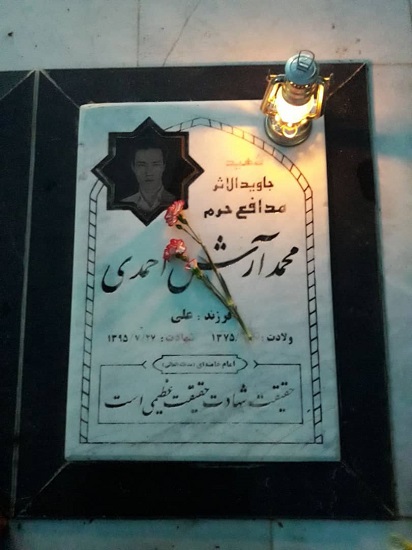 شهید
جاویدالاثر
مدافع حرم
محمد آرش احمدی
فرزند : علی
ولادت : ۱۳۷۵/ شهادت : ۱۳۹۵/۷/۲۷
امام خامنه‌ای (مدظله‌العالی)
حقیقت شهادت حقیقت عظیمی است